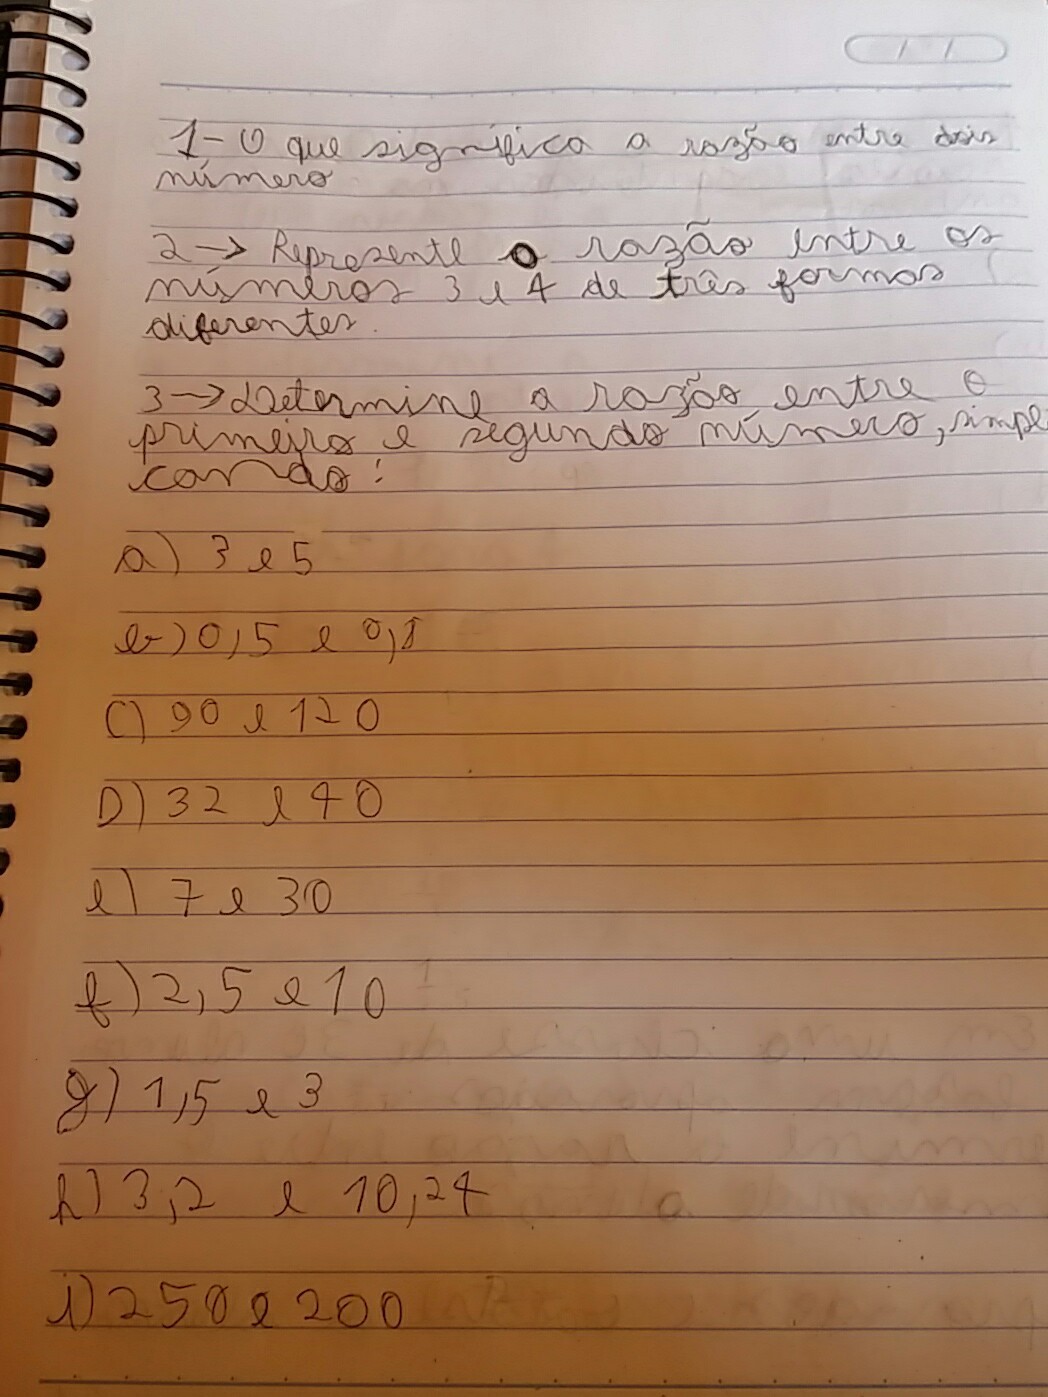 1- O que significa a razão entre dois
número
2 → Represente a razão entre os
números 3 e 4 de três formas
diferentes.
3 → Determine a razão entre o
primeiro e segundo número, simpli
cando:
a) 3 e 5
b) 0,5 e 0,8
C) 90 e 120
D) 32 e 40
e) 7 e 30
f) 2,5 e 10
g) 1,5 e 3
h) 3,2 e 10,24
i) 250 e 200